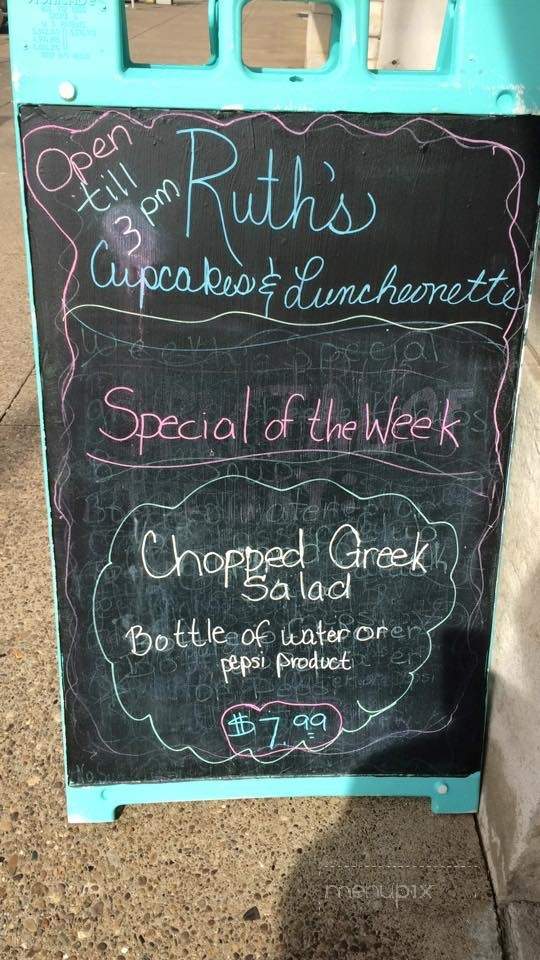 Open
till
3 pm
Ruth's
Cupcakes & Luncheonette
Special of the Week
Chopped Greek
Salad
Bottle of water or
pepsi product
$7.99
menupix